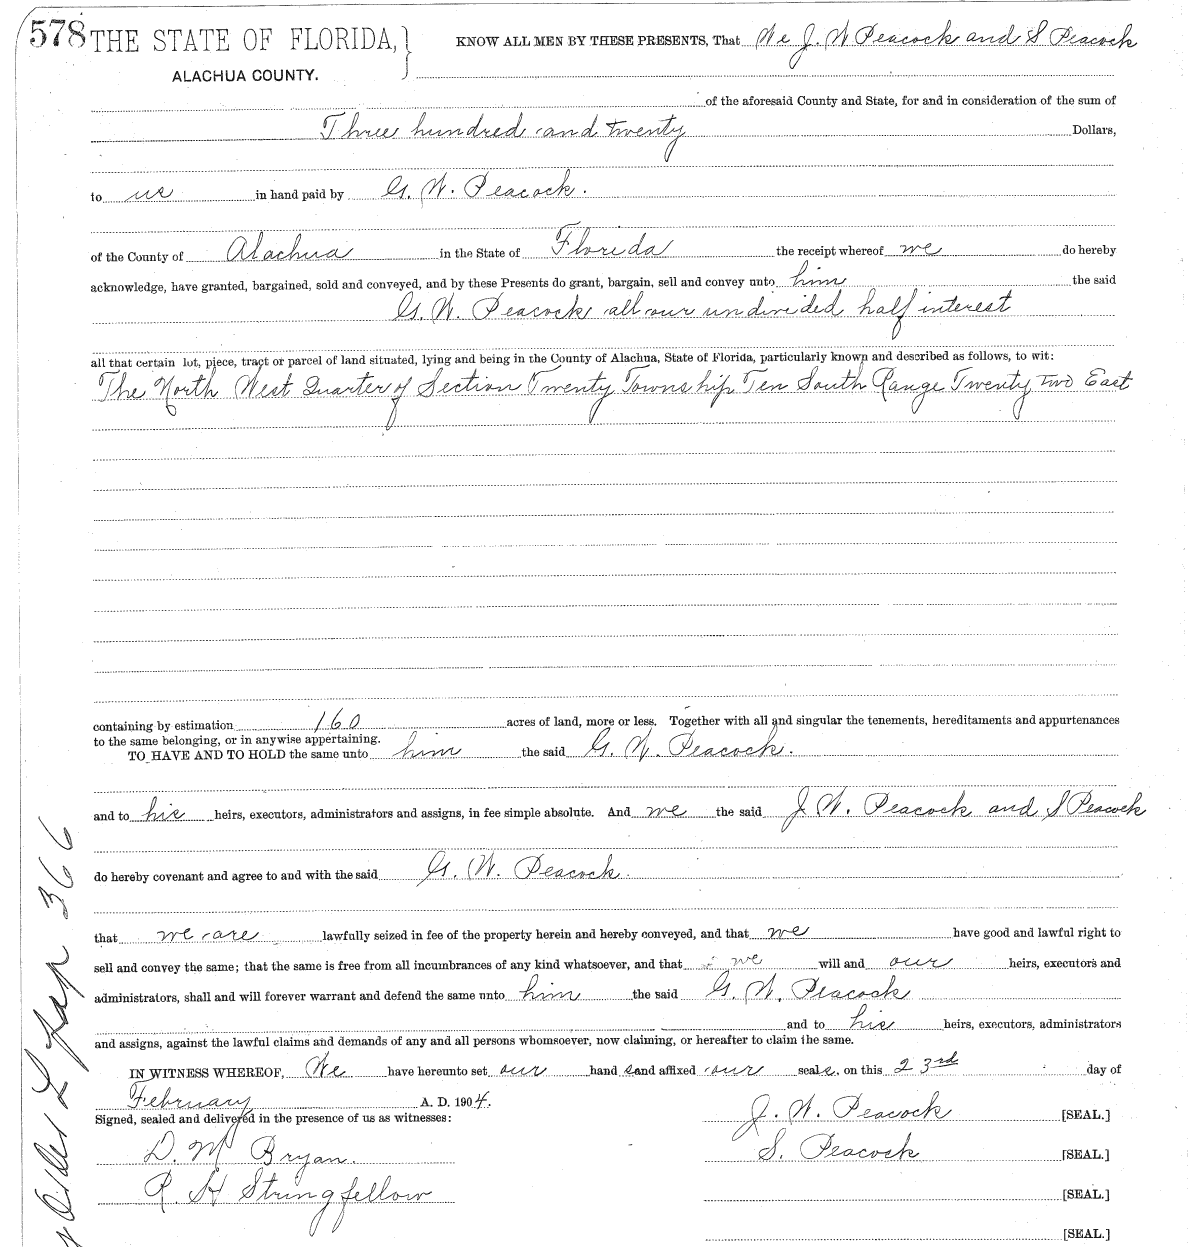 578 THE STATE OF FLORIDA, KNOW ALL MEN BY THESE PRESENTS, That We J. W Peacock and S Peacock
ALACHUA COUNTY.
of the aforesaid County and State, for and in consideration of the sum of
Three hundred and twenty Dollars,
to us in hand paid by G. W. Peacock.
of the County of Alachua in the State of Florida the receipt whereof we do hereby
acknowledge, have granted, bargained, sold and conveyed, and by these Presents do grant, bargain, sell and convey unto him the said
G. W. Peacock all our undivided half interest
all that certain lot, piece, tract or parcel of land situated, lying and being in the County of Alachua, State of Florida, particularly known and described as follows, to wit:
The North West Quarter of Section Twenty Township Ten South Range Twenty two East
containing by estimation 160 acres of land, more or less. Together with all and singular the tenements, hereditaments and appurtenances
to the same belonging, or in anywise appertaining.
TO HAVE AND TO HOLD the same unto him the said G. W. Peacock.
and to his heirs, executors, administrators and assigns, in fee simple absolute. And we the said J. W. Peacock and S Peacock
do hereby covenant and agree to and with the said G. W. Peacock.
that we are lawfully seized in fee of the property herein and hereby conveyed, and that we have good and lawful right to
sell and convey the same; that the same is free from all incumbrances of any kind whatsoever, and that we will and our heirs, executors and
administrators, shall and will forever warrant and defend the same unto him the said G. W. Peacock
and to his heirs, executors, administrators
and assigns, against the lawful claims and demands of any and all persons whomsoever, now claiming, or hereafter to claim the same.
IN WITNESS WHEREOF, We have hereunto set our hand s and affixed our seals, on this 23rd day of
February A. D. 1904.
Signed, sealed and delivered in the presence of us as witnesses: J. W. Peacock [SEAL.]
D. M Bryan. S. Peacock [SEAL.]
R. H Stringfellow [SEAL.]
[SEAL.]
366